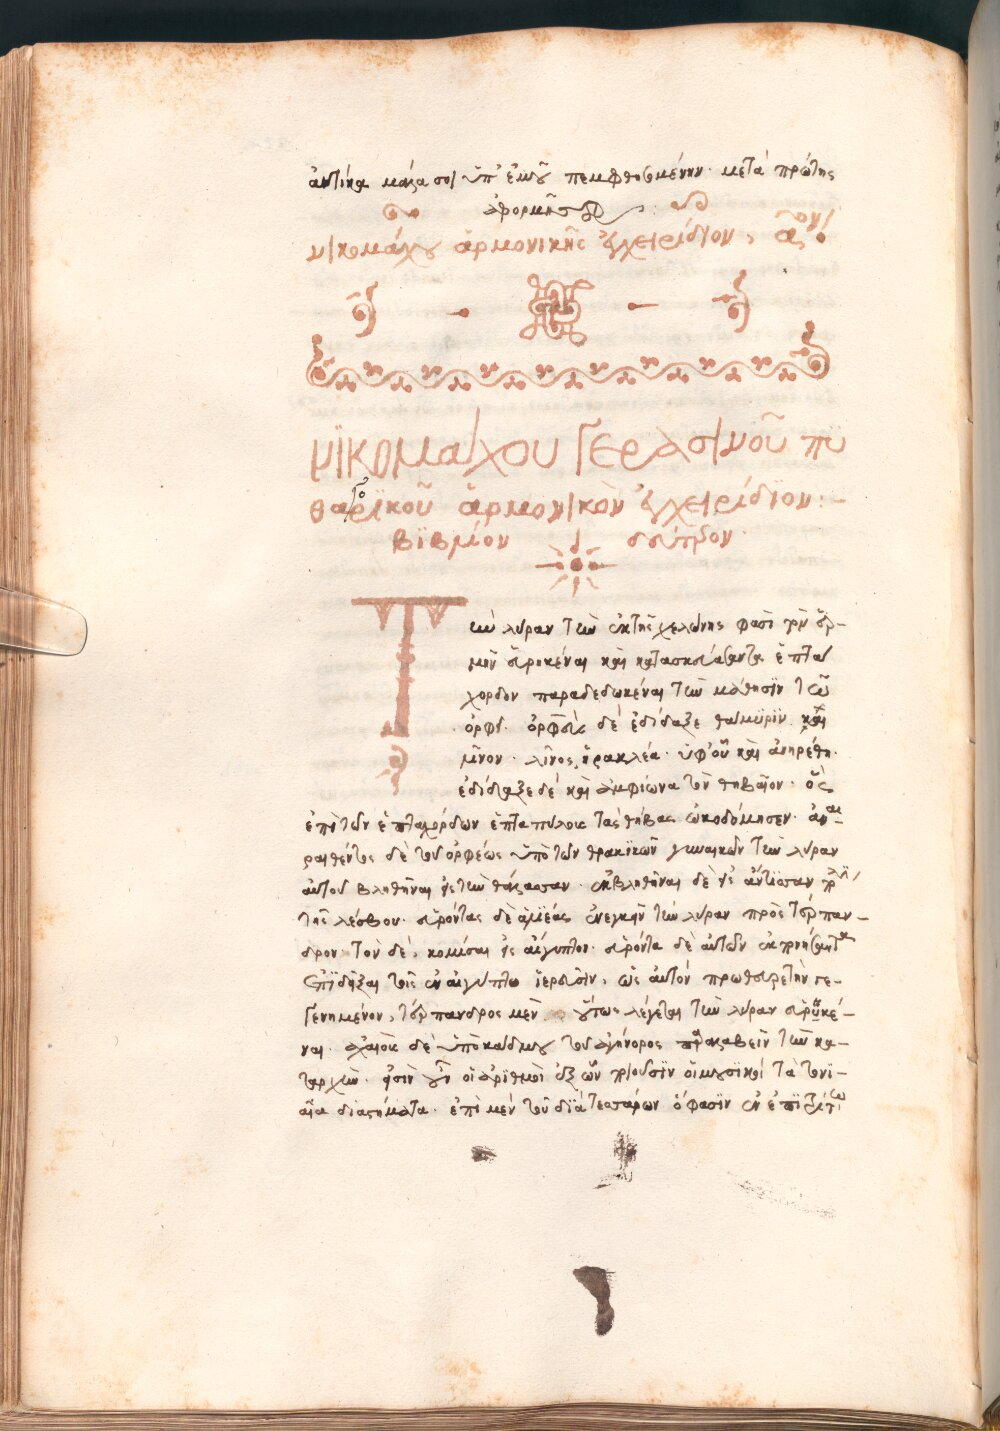 αὐτίκα μάλα σοι ὑπ' ἐμοῦ πεμφθησομένην· μετὰ πρώτης
ἀφορμῆς
νικομάχου ἁρμονικῆς ἐγχειρίδιον, α^ον:
νϊκομάχου Γερασινοῦ πυ
θαγορϊκοῦ ἁρμονικὸν ἐγχειρίδϊον:-
βϊβλίον δεύτερον·
Τ
ὴν λύραν τὴν ἐκ τῆς χελώνης φασὶ τὸν ἑρ-
μῆν εὑρηκέναι καὶ κατασκευάσαντα ἑπτά
χορδον παραδεδωκέναι τὴν μάθησϊν τῶ
ὀρφεῖ· ὀρφεὺς δὲ ἐδίδαξε θαμύρϊν καὶ
λῖνον· λῖνος ἡρακλέα· ὑφ' οὗ καὶ ἀνηρέθη·
ἐδίδαξε δὲ καὶ ἀμφίωνα τὸν θηβαῖον· ὃς
ἐπὶ τῶν ἑπταχόρδων ἑπταπύλους τὰς θήβας ὠκοδόμησεν· ἀναι-
ρεθέντος δὲ τοῦ ὀρφέως ὑπὸ τῶν θρακϊκῶν γυναικῶν τὴν λύραν
αὐτοῦ βληθῆναι εἰς τὴν θάλασσαν· ἐκβληθῆναι δὲ εἰς ἄντισσαν πόλϊν
τῆς λέσβου· εὑρόντας δὲ ἁλϊέας ἐνεγκεῖν τὴν λύραν πρὸς τέρπαν-
δρον· τὸν δὲ, κομίσαι εἰς αἴγυπτον· εὑρόντα δὲ αὐτὸν ἐκπονήσαντα
ἐπϊδεῖξαι τοῖς ἐν αἰγύπτω ἱερεῦσϊν, ὡς αὐτὸν πρωθευρετὴν γε-
γενημένον, τέρπανδρος μὲν οὕτως λέγεται τὴν λύραν εὑρηκέ-
ναι· ἀχαιοὺς δὲ ὑπὸ κάδμου τοῦ ἀγήνορος παραλαβεῖν τὴν κα-
ταρχὴν· εἰσὶν οὖν οἱ ἀρϊθμοὶ ἐξ ὧν ποιοῦσϊν οἱ μουσϊκοί τὰ τονϊ-
αῖα διαστήματα· ἐπὶ μὲν τοῦ δϊὰ τεσσάρων ὅ φασϊν ἐν ἐπϊτρίτω